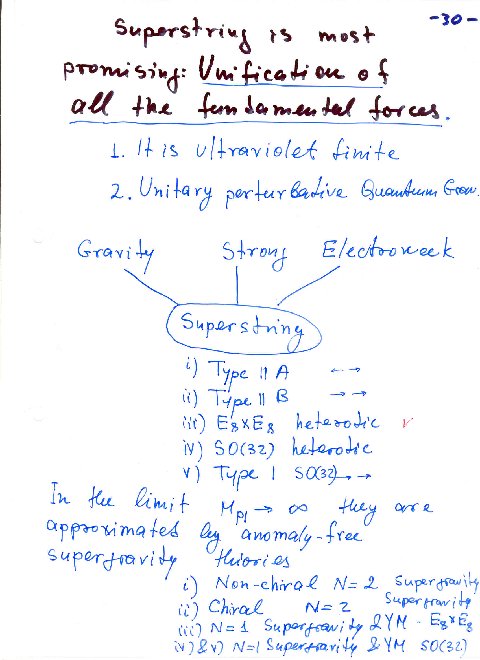 -30-
Superstring is most
promising: Unification of
all the fundamental forces.
1. It is ultraviolet finite
2. Unitary perturbative Quantum Grav.
Gravity Strong Electroweek
Superstring
i) Type II A ← →
ii) Type II B → →
iii) E8xE8 heterotic v
iv) SO(32) heterotic
v) Type I SO(32) → →
In the limit Mpl → ∞ they are
approximated by anomaly-free
supergravity thiories
i) Non-chiral N=2 Supergravity
ii) Chiral N=2 Supergravity
iii) N=1 Supergravity & YM - E8xE8
iv) & v) N=1 Supergravity & YM SO(32)